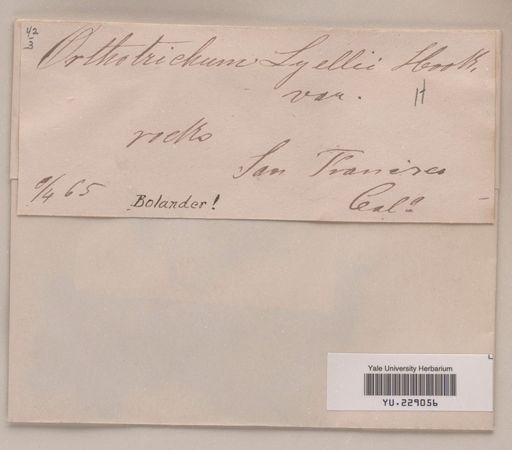 42
3
Orthotrichum Lyellii Hook.
var.
H
rocks
San Francisco
/4 65
Bolander!
Cala
Yale University Herbarium
YU.229056